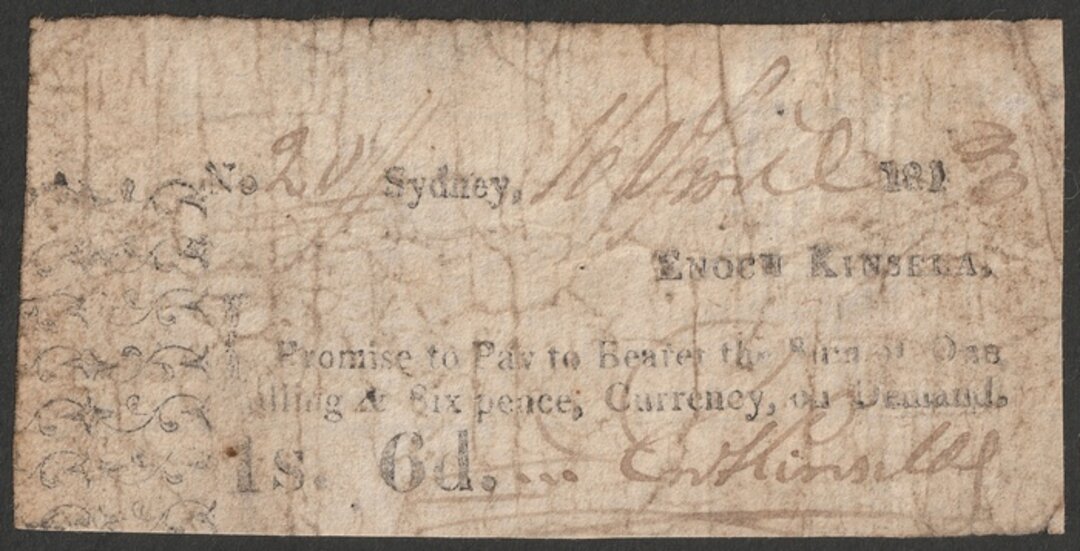 No 28 Sydney, 16 April 181
ENOCH KINSELA.
I Promise to Pay to Bearer the Sum of One
illing & Six pence, Currency, on Demand.
1s. 6d.... En Kinsela